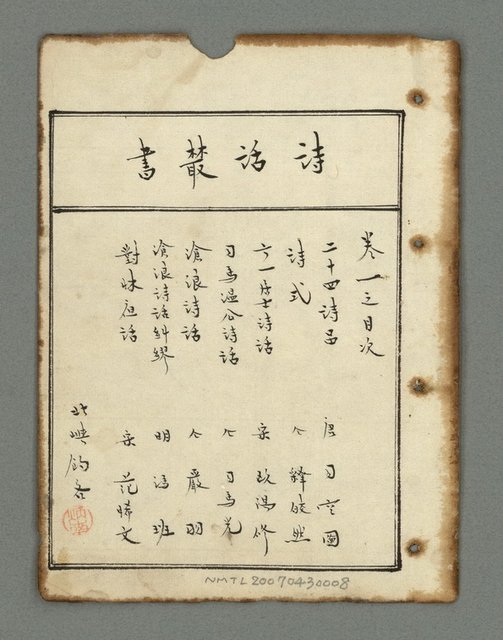 詩話叢書
卷一之目次
二十四詩品 唐 司空圖
詩式 仝 釋皎然
六一居士詩話 宋 歐陽修
司馬温公詩話 仝 司馬光
滄浪詩話 仝 嚴羽
滄浪詩話糾繆 明 馮班
對牀夜話 宋 范晞文
北嶼釣客
NMTL20070430008